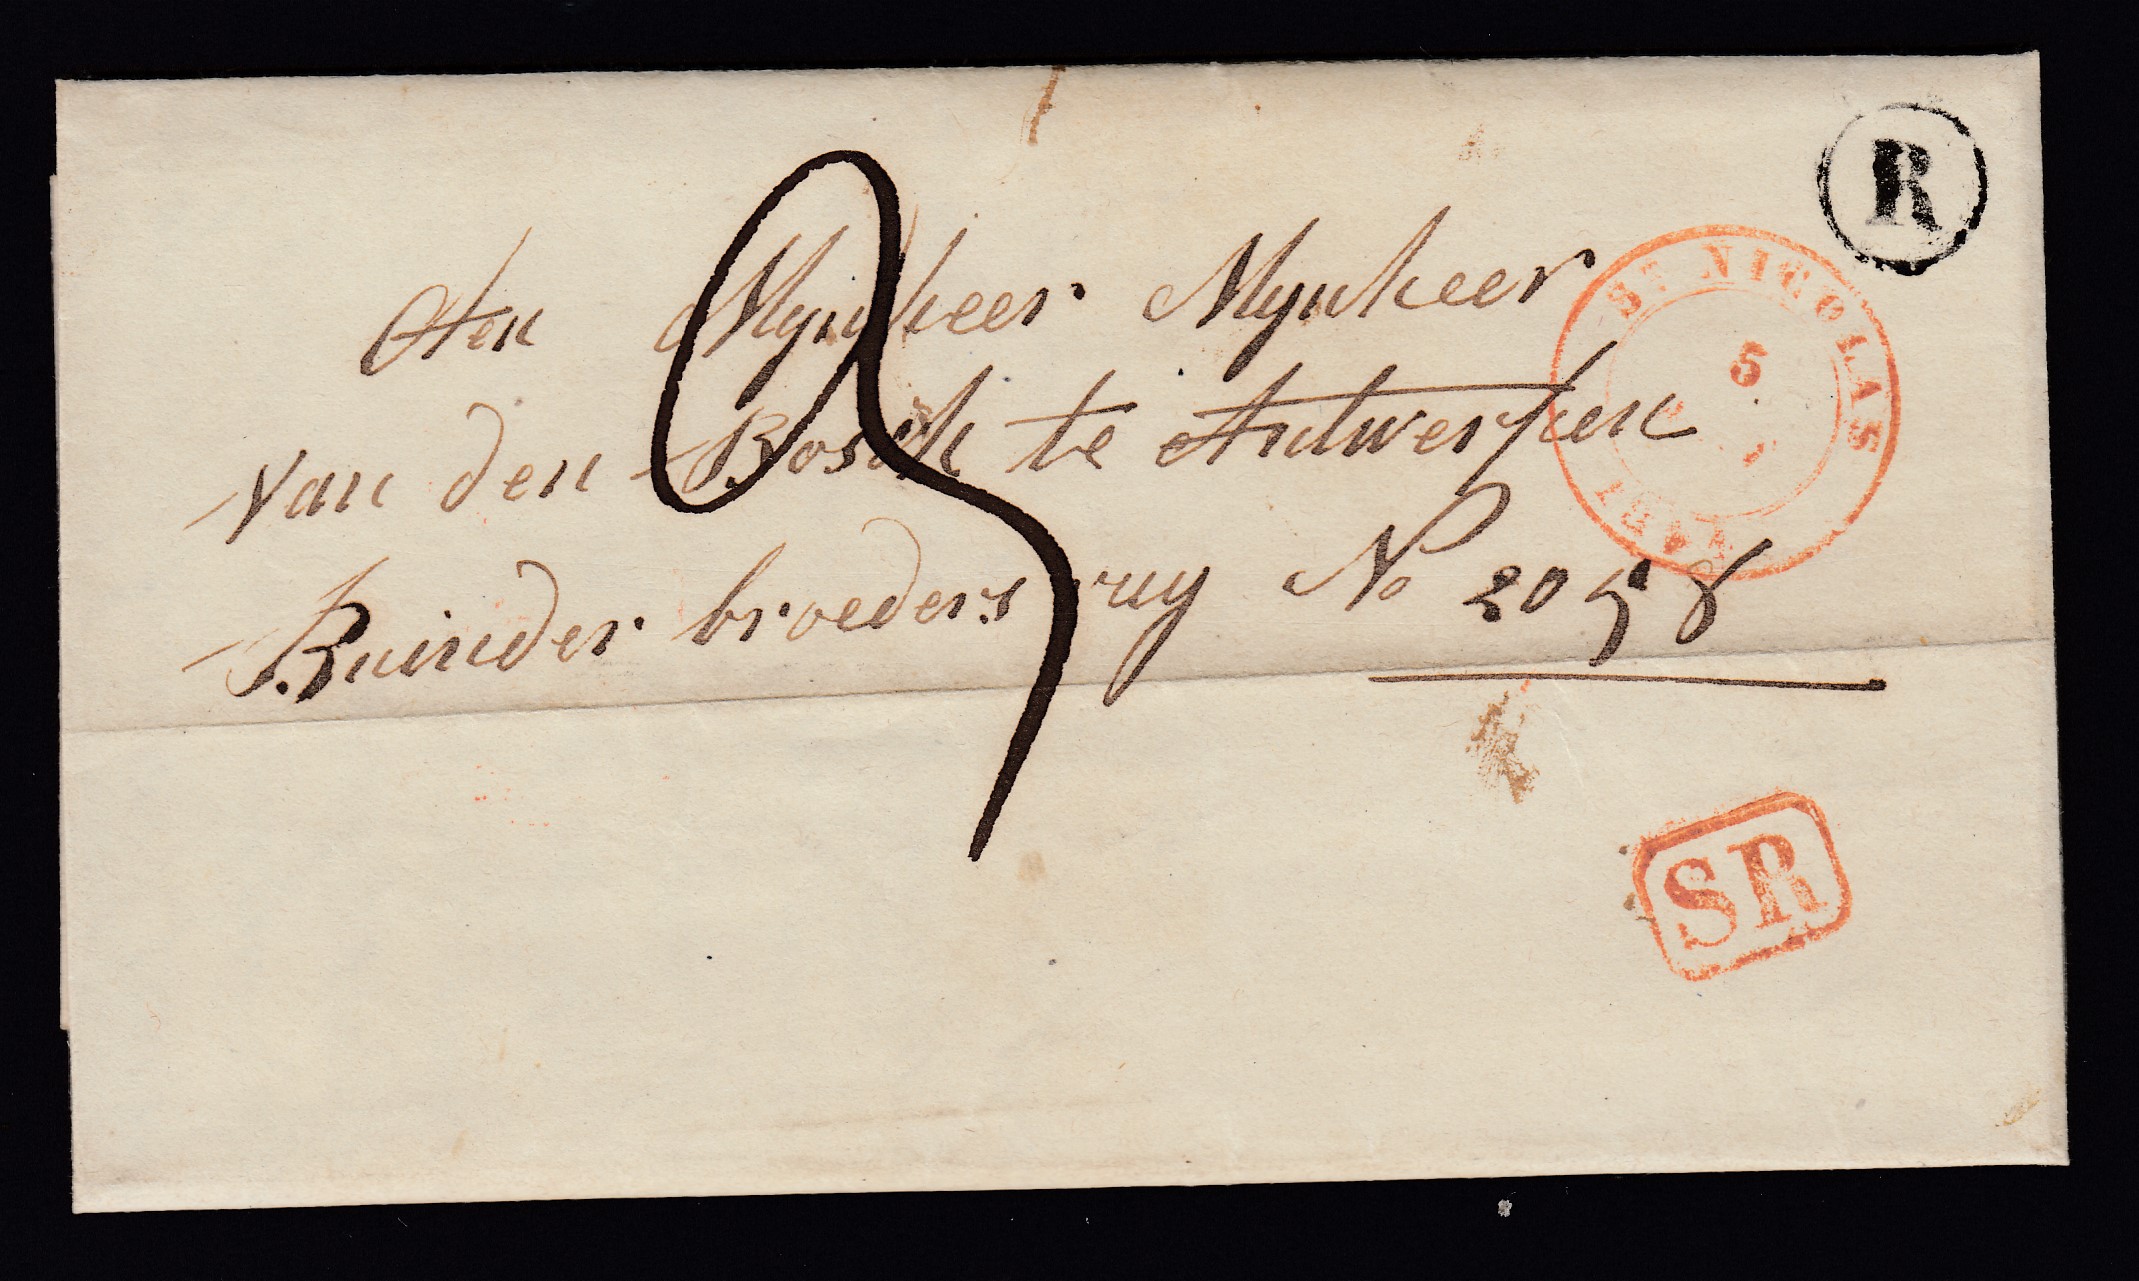 R
Aen Mynheer Mynheer
van den Bosch te Antwerpen
Minder broeders ruy No 2058
3
ST NICOLAS
5
SR